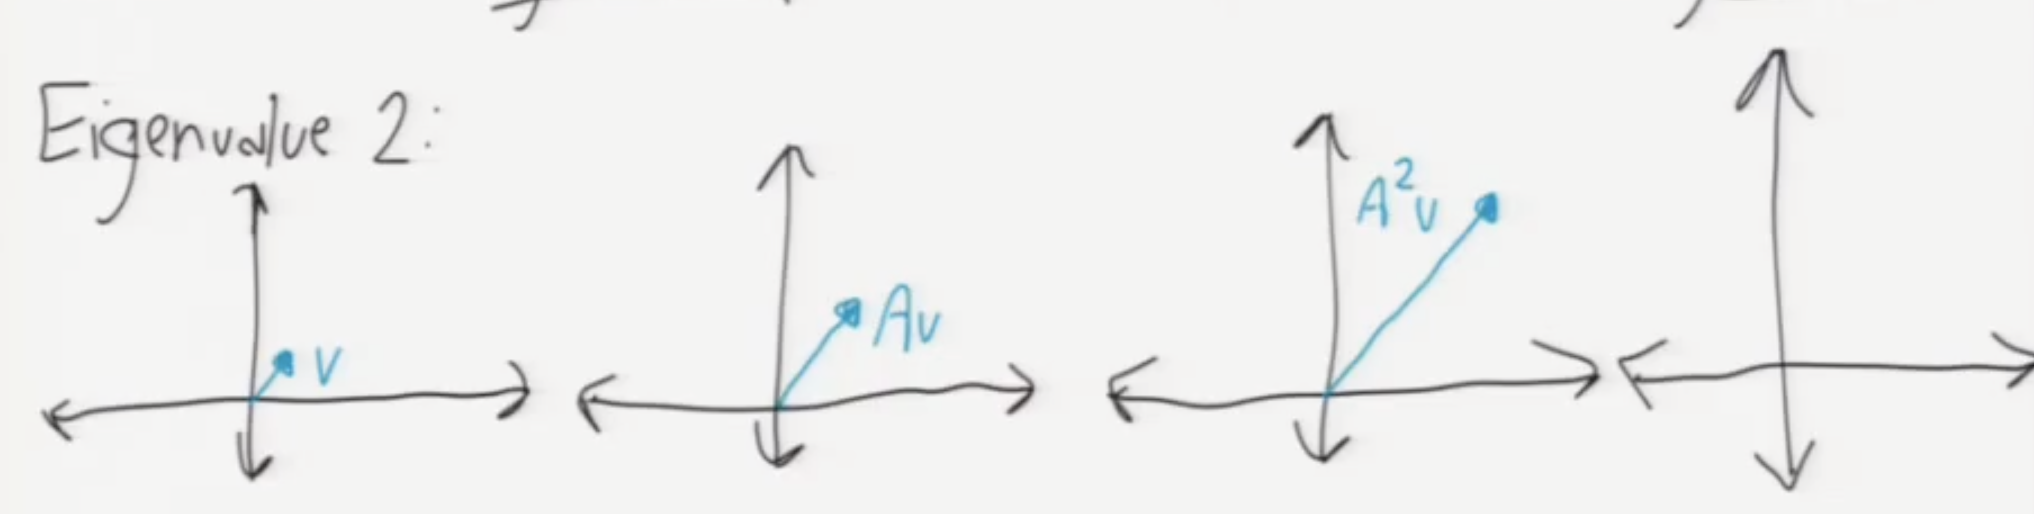 Eigenvalue 2:
v
Av
A²v